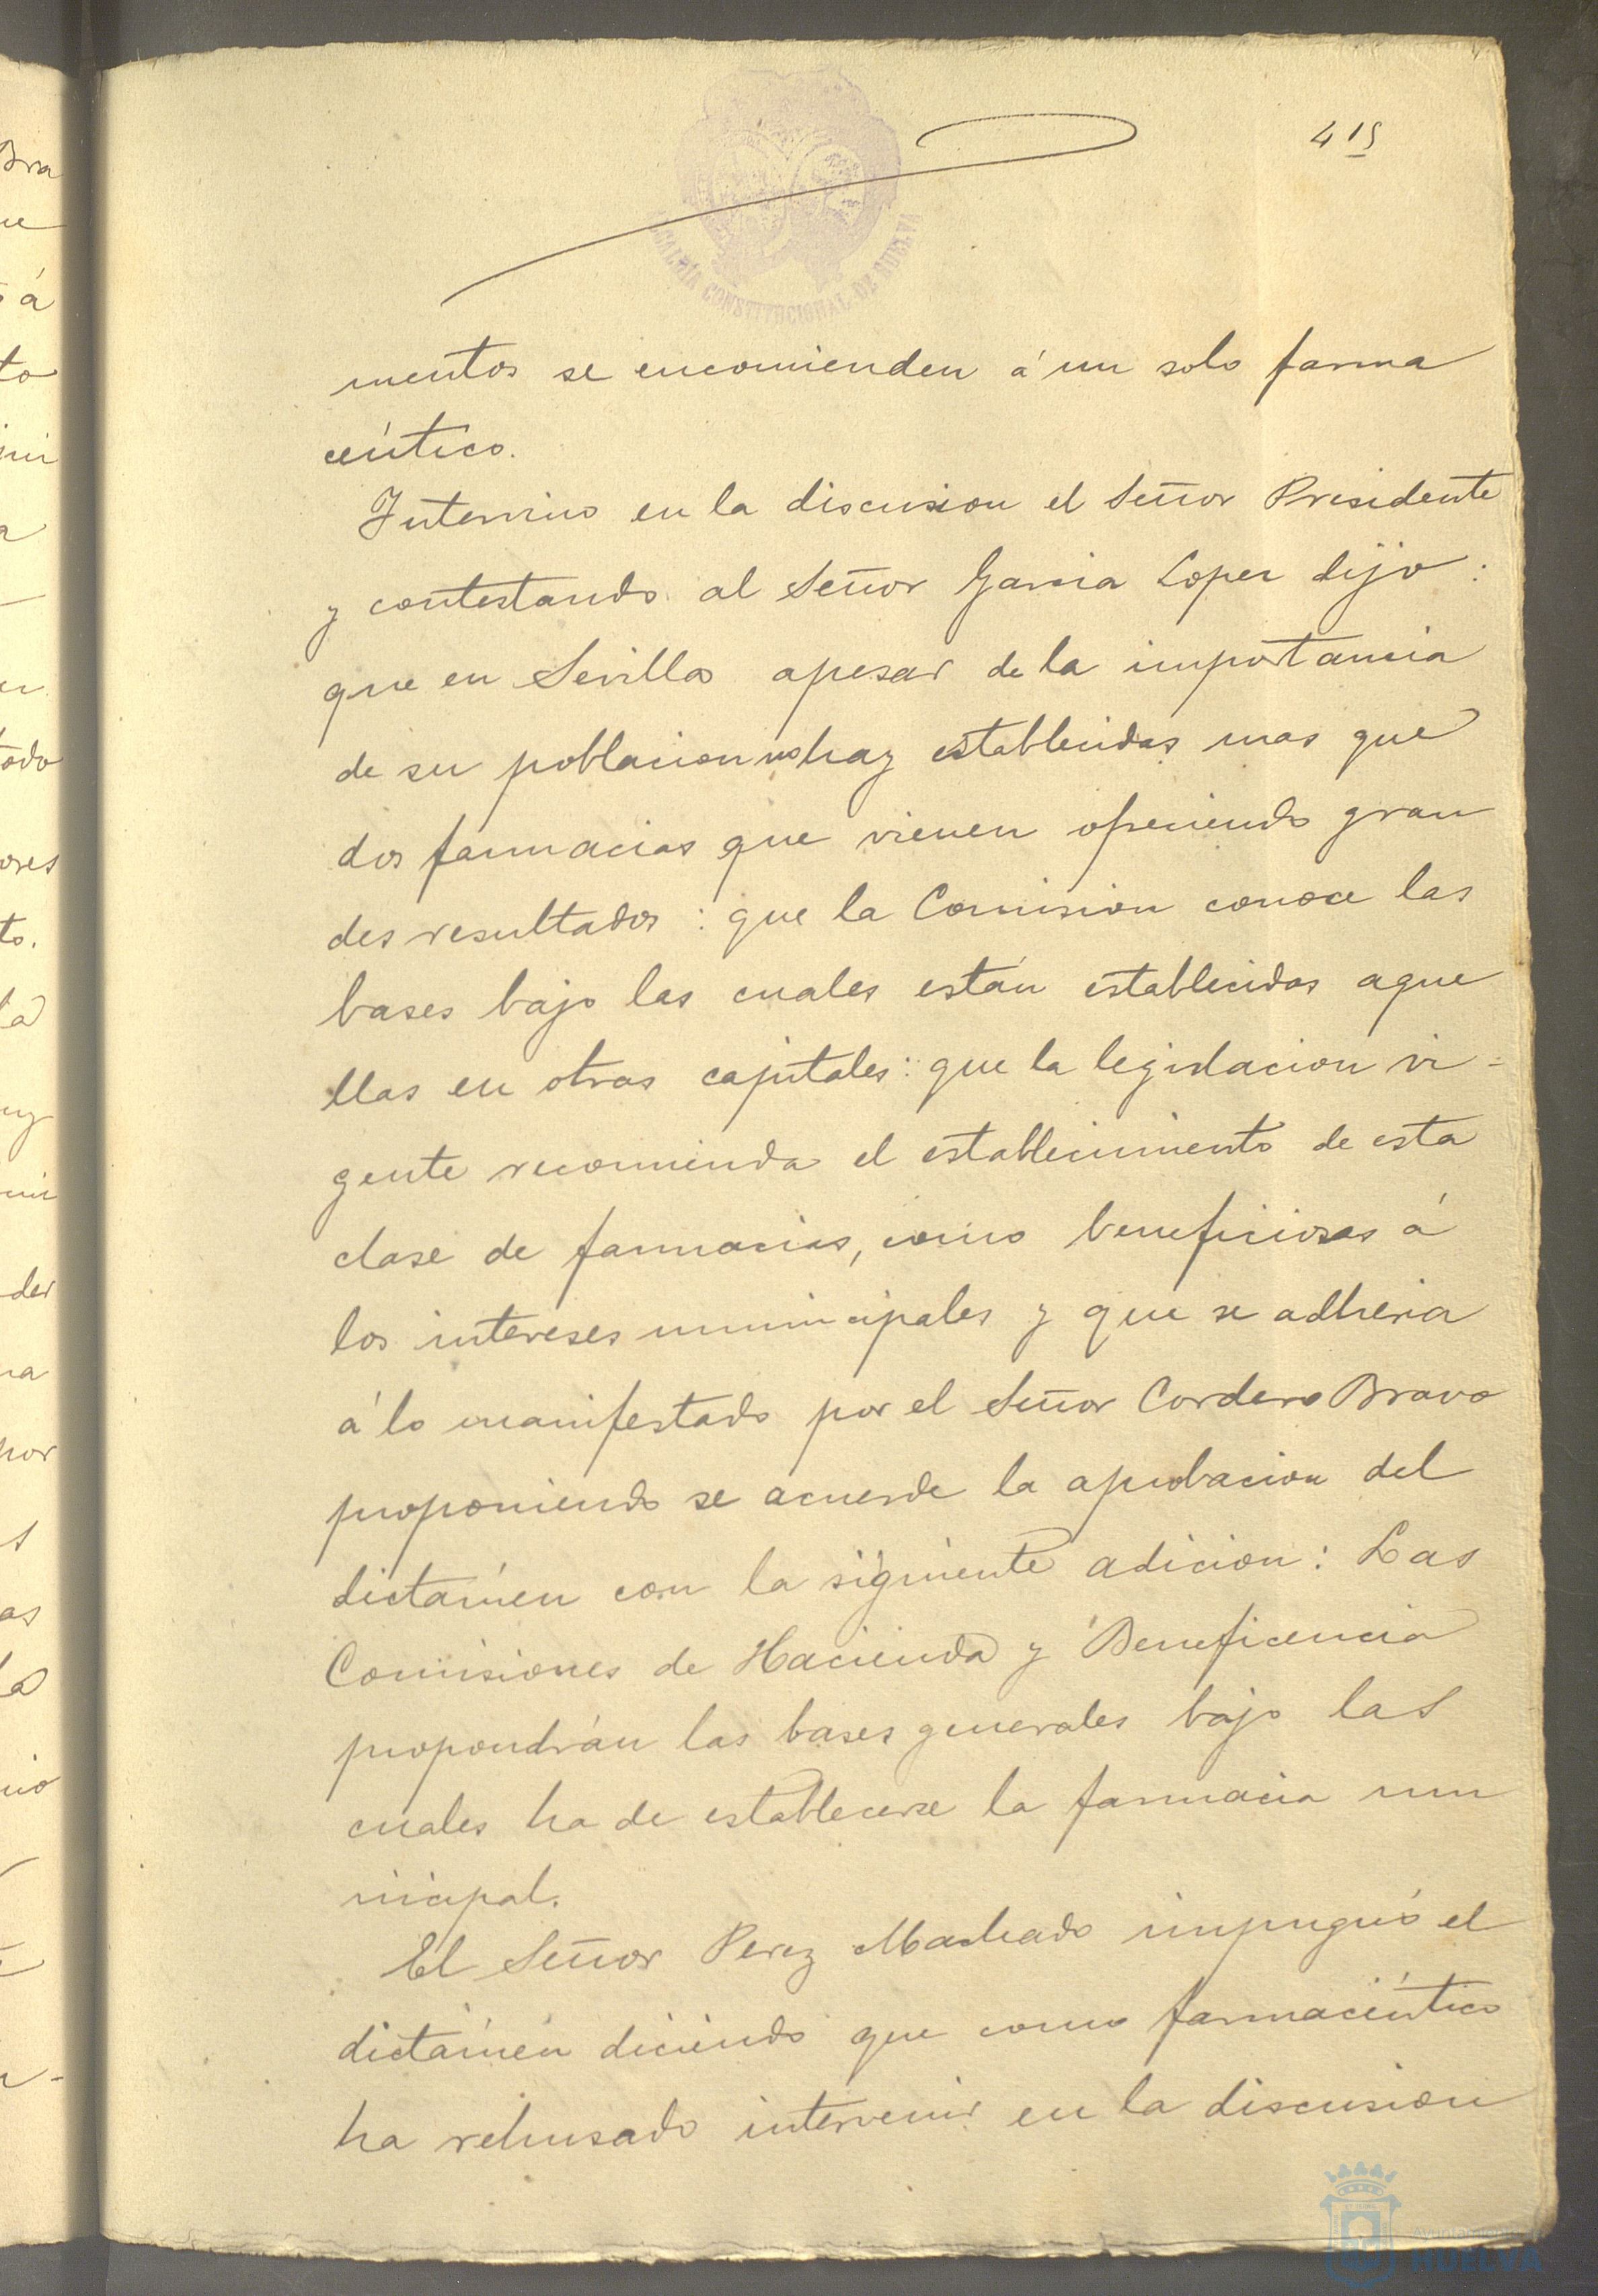 415
ALCALDÍA CONSTITUCIONAL DE HUELVA
mentos se encomienden á un solo farma
céutico.
Intervino en la discusion el Señor Presidente
y contestando al Señor Garcia Lopez dijo:
que en Sevilla apesar de la importancia
de su poblacion no hay establecidas mas que
dos farmacias que vienen ofreciendo gran
des resultados: que la Comision conoce las
bases bajo las cuales están establecidas aque
llas en otras capitales: que la legislacion vi-
gente recomienda el establecimiento de esta
clase de farmacias, como beneficiosas á
los intereses municipales y que se adheria
á lo manifestado por el Señor Cordero Bravo
proponiendo se acuerde la aprobacion del
dictámen con la siguiente adicion: Las
Comisiones de Hacienda y Beneficencia
propondrán las bases generales bajo las
cuales ha de establecerse la farmacia mu
nicipal.
El Señor Perez Machado impugnó el
dictámen diciendo que como farmacéutico
ha rehusado intervenir en la discusion
Ayuntamiento
HUELVA